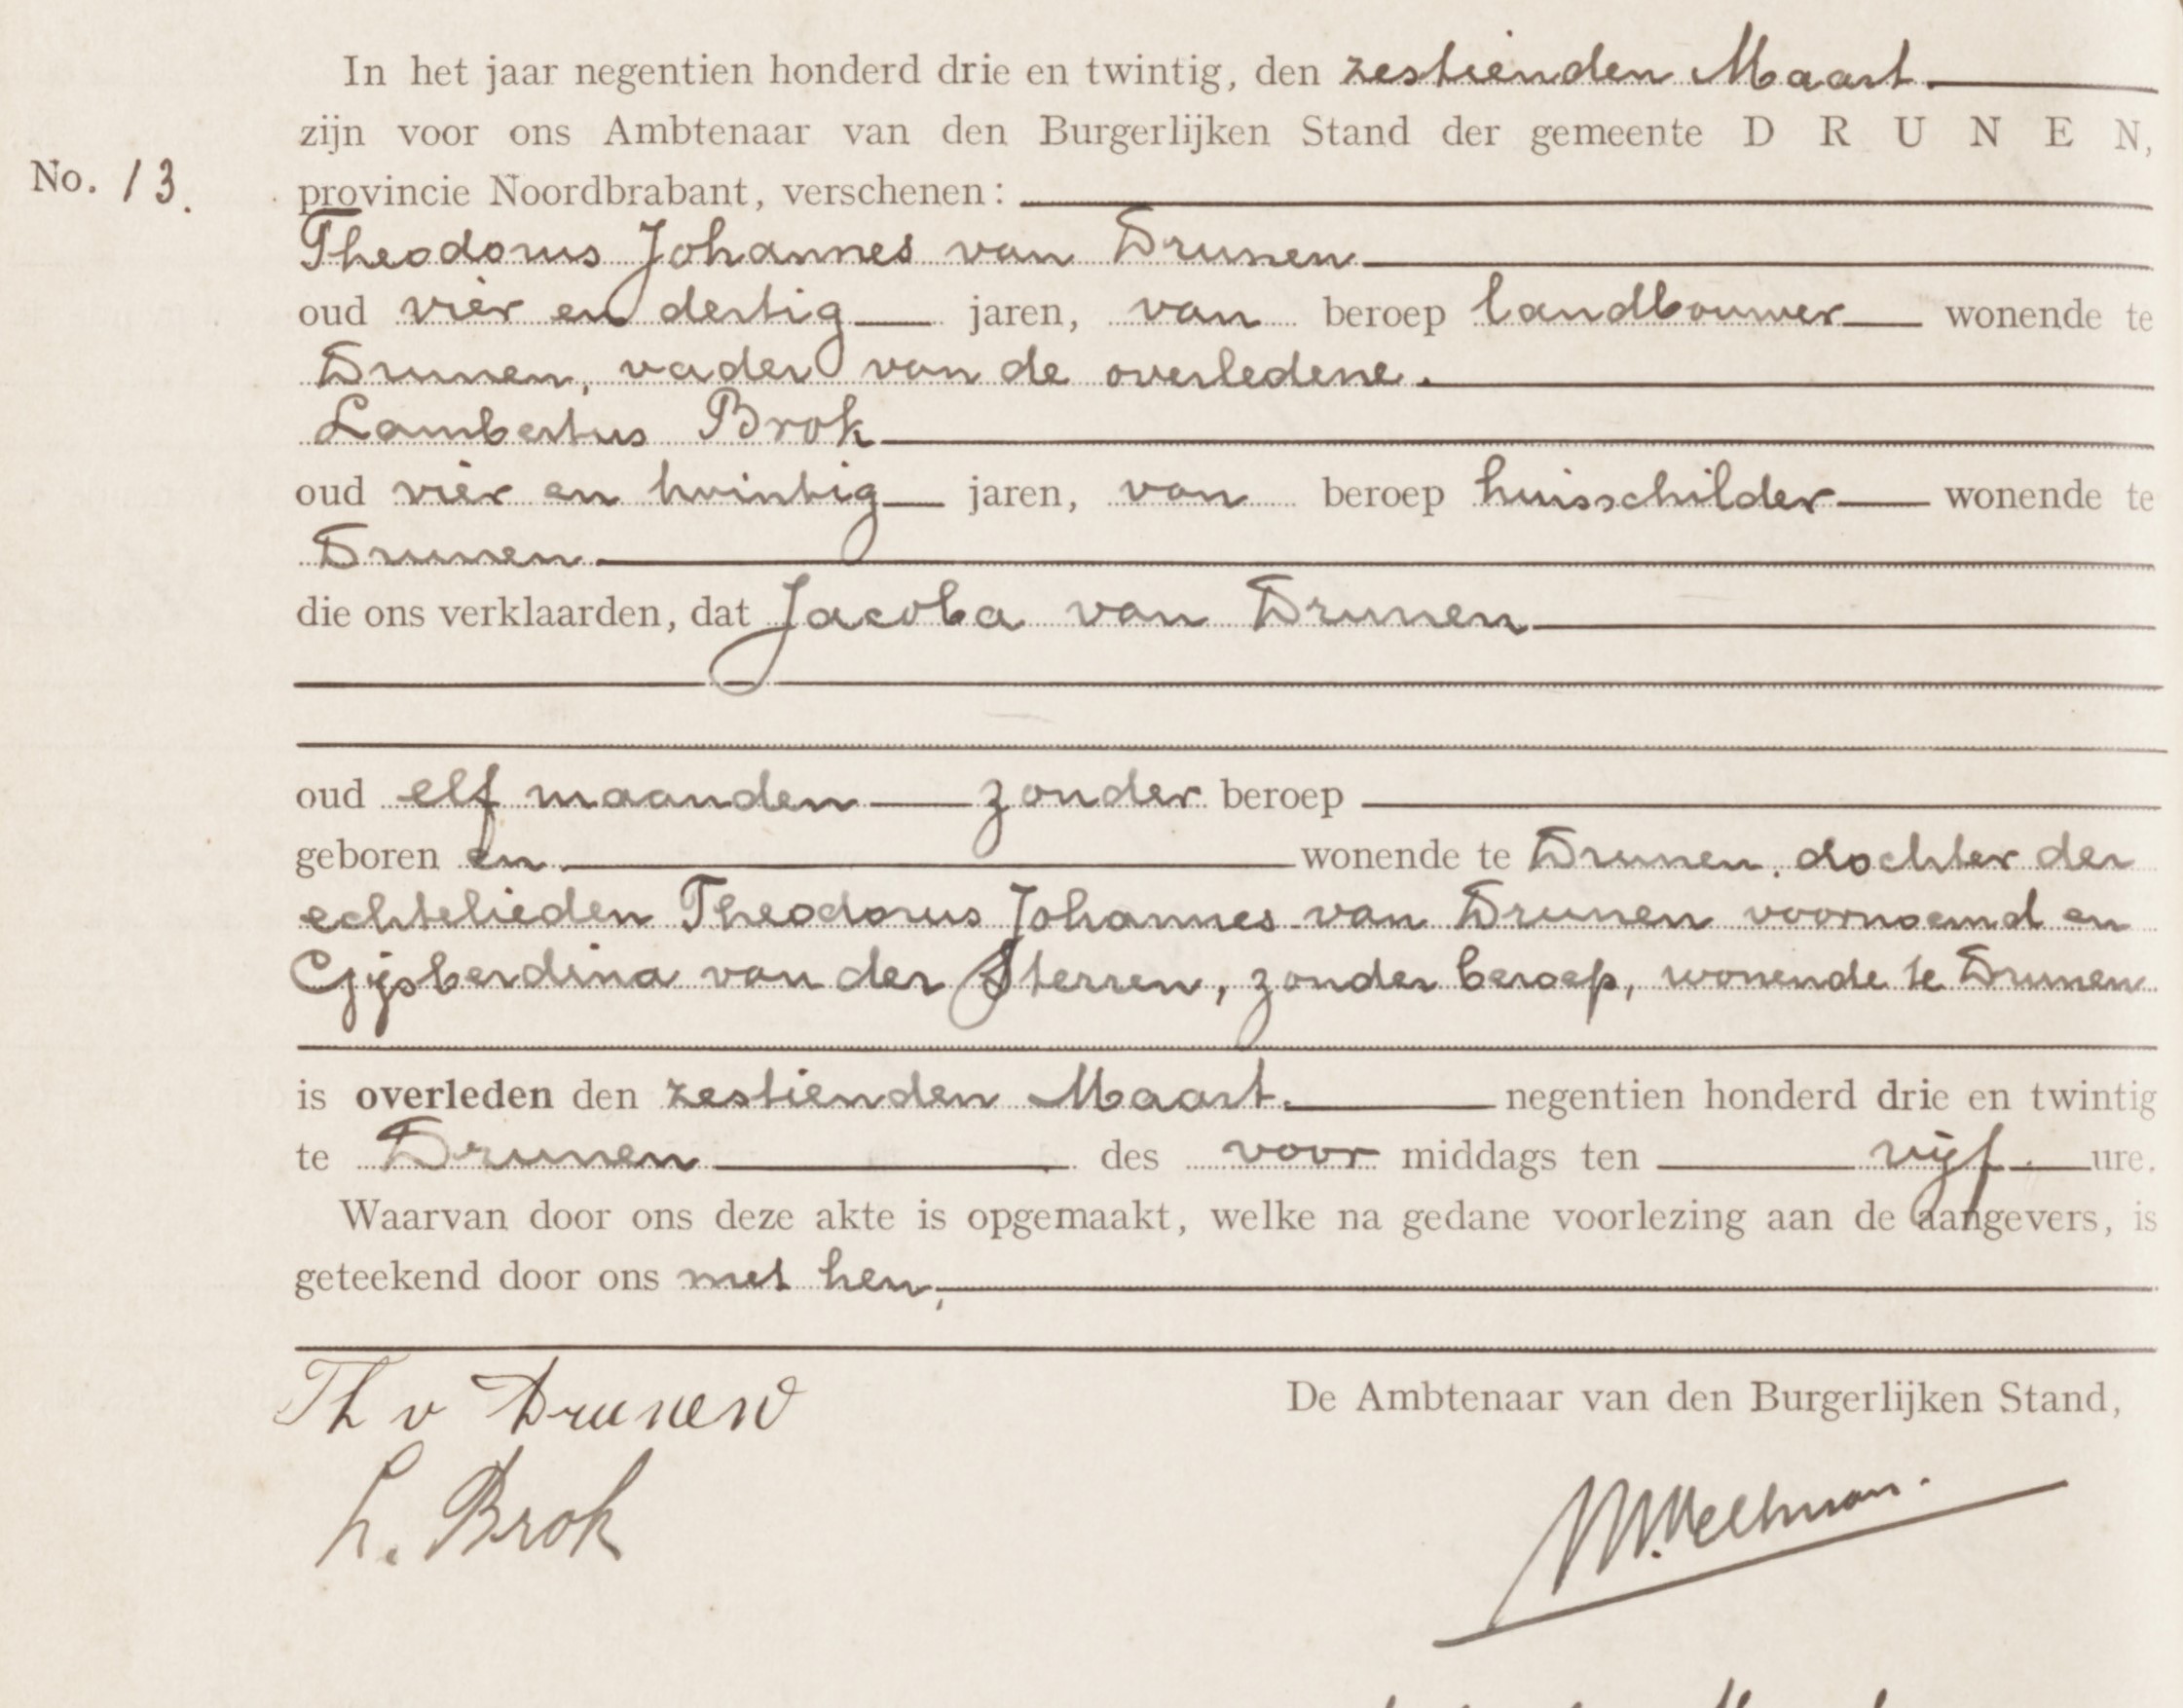 In het jaar negentien honderd drie en twintig, den zestienden Maart
zijn voor ons Ambtenaar van den Burgerlijken Stand der gemeente DRUNEN,
No. 13.
provincie Noordbrabant, verschenen:
Theodorus Johannes van Drunen
oud vier en dertig jaren, van beroep landbouwer wonende te
Drunen, vader van de overledene.
Lambertus Brok
oud vier en twintig jaren, van beroep huisschilder wonende te
Drunen
die ons verklaarden, dat Jacoba van Drunen
oud elf maanden zonder beroep
geboren en wonende te Drunen, dochter der
echtelieden Theodorus Johannes van Drunen voornoemd en
Gijsberdina van der Sterren, zonder beroep, wonende te Drunen
is overleden den zestienden Maart. negentien honderd drie en twintig
te Drunen des voor middags ten vijf ure.
Waarvan door ons deze akte is opgemaakt, welke na gedane voorlezing aan de aangevers, is
geteekend door ons met hen,
Th v Drunen
De Ambtenaar van den Burgerlijken Stand,
L. Brok